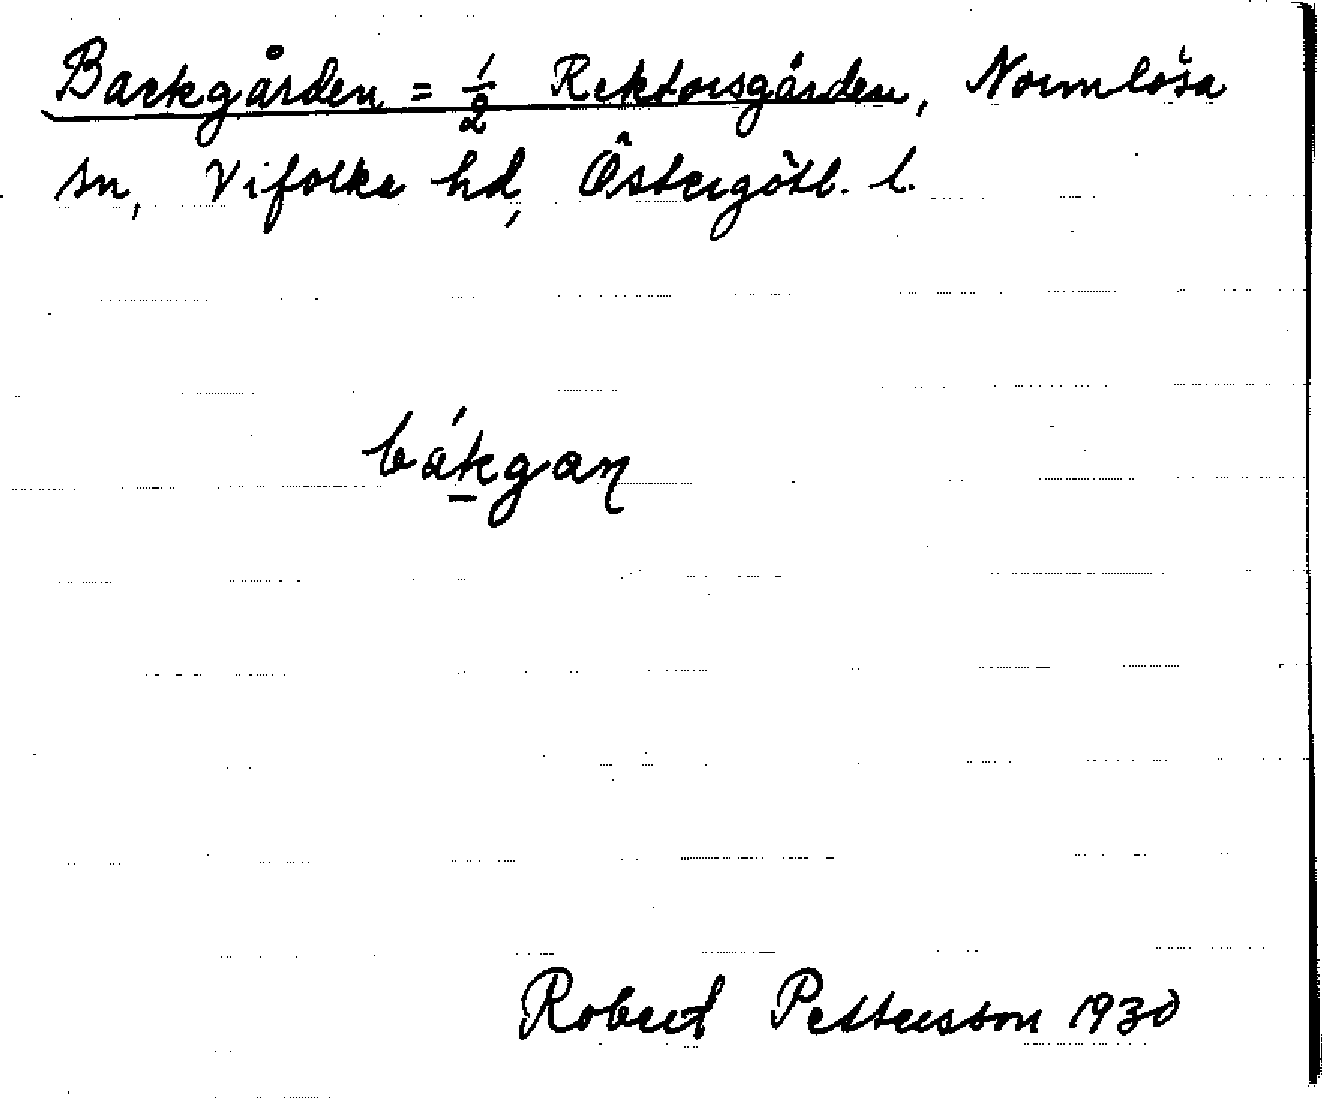 Backgården = ½ Rektorsgården, Normlösa
sn, Vifolka hd, Östergötl. l.
bákgaɳ
Robert Pettersson 1930